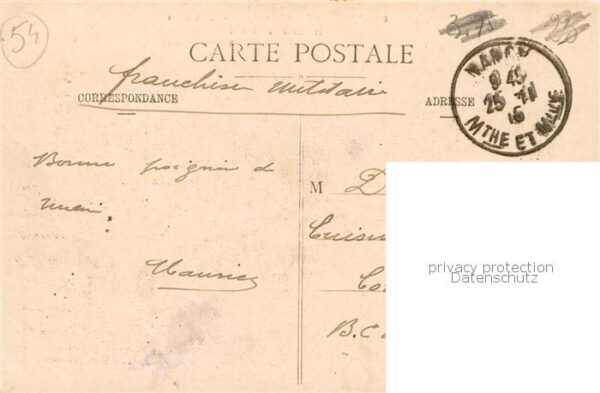 54
3,75
CARTE POSTALE
franchise militaire
CORRESPONDANCE
ADRESSE
NANCY
9 45
25 - 11
15
MTHE ET MLLE
Bonne poignée de
main.
Maurice
M D
Cuisin
Co
B.C
privacy protection
Datenschutz